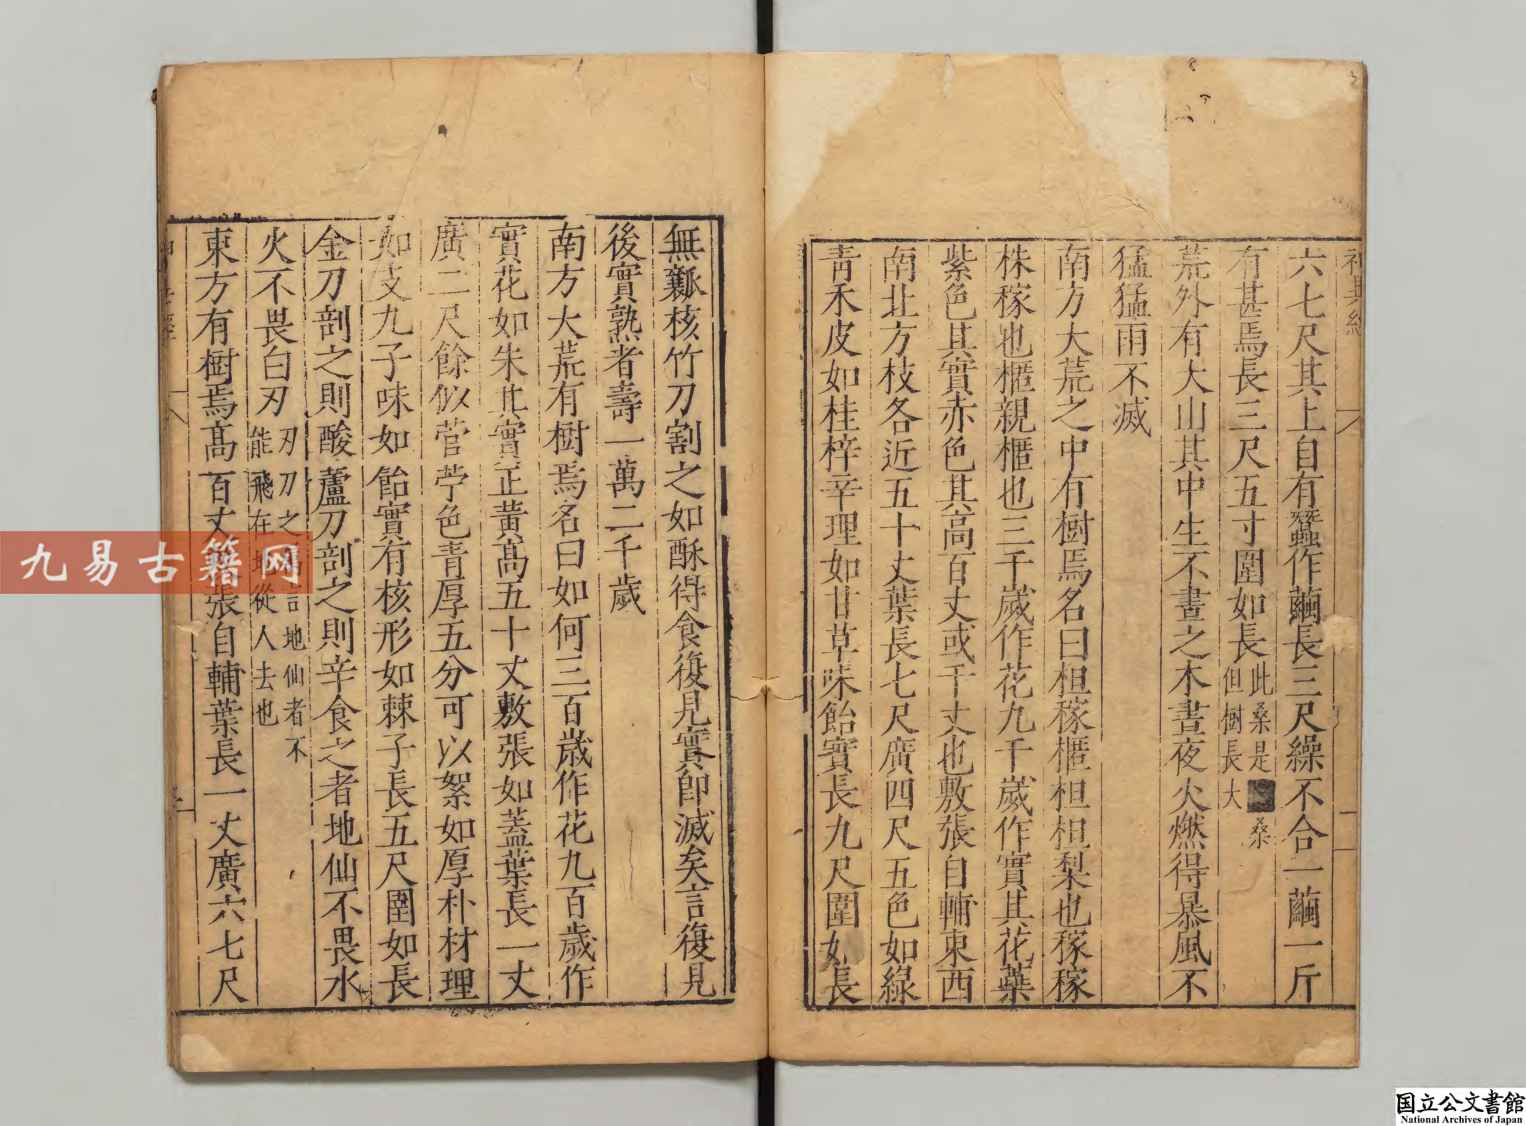 神異經
六七尺其上自有蠶作繭長三尺繰不合一繭一斤
有甚焉長三尺五寸圍如長此桑是桑
但樹長大
荒外有大山其中生不晝之木晝夜火燃得暴風不
猛猛雨不滅
南方大荒之中有樹焉名曰柤稼櫃柤柤梨也稼稼
株稼也櫃親櫃也三千歲作花九千歲作實其花蘂
紫色其實赤色其高百丈或千丈也敷張自輔東西
南北方枝各近五十丈葉長七尺廣四尺五色如綠
青禾皮如桂梓辛理如甘草味飴實長九尺圍如長
無瓤核竹刀割之如酥得食復見實即滅矣言復見
後實熟者壽一萬二千歲
南方大荒有樹焉名曰如何三百歲作花九百歲作
實花如朱其實正黃高五十丈敷張如蓋葉長一丈
廣二尺餘似菅苧色青厚五分可以絮如厚朴材理
如支九子味如飴實有核形如棘子長五尺圍如長
金刀剖之則酸蘆刀剖之則辛食之者地仙不畏水
火不畏白刃刃刀之言地仙者不
能飛在地從人去也
東方有樹焉高百丈張自輔葉長一丈廣六七尺
九易古籍网
国立公文書館
National Archives of Japan